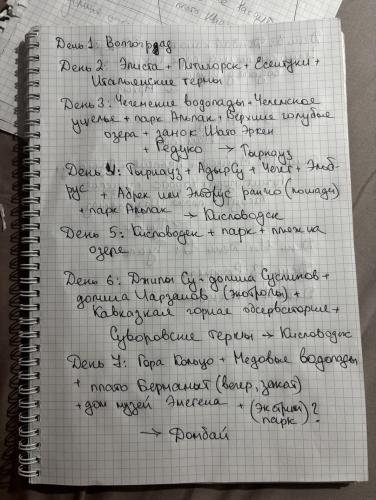 День 1: Волгоград
День 2: Элиста + Пятигорск + Есентуки +
Итальянские термы
День 3: Чегемские водопады + Чегемское
ущелье + парк Альпак + Верхние голубые
озера + замок Шато Эркен
+ Гедуко → Тырнауз
День 4: Тырнауз + АдырСу + Чегет + Эльб-
рус + Абрек или Эльбрус ранчо (лошади)
+ парк Альпак → Кисловодск
День 5: Кисловодск + парк + пляж на
озере
День 6: Джилы Су - долина Сусликов +
долина Нарзанов (экотропы) +
Кавказская горная обсерватория +
Суворовские термы → Кисловодск
День 7: Гора Кольцо + Медовые водопады
+ плато Бермамыт (вечер, закат)
+ дом музей + (экстрим парк)?
→ Домбай